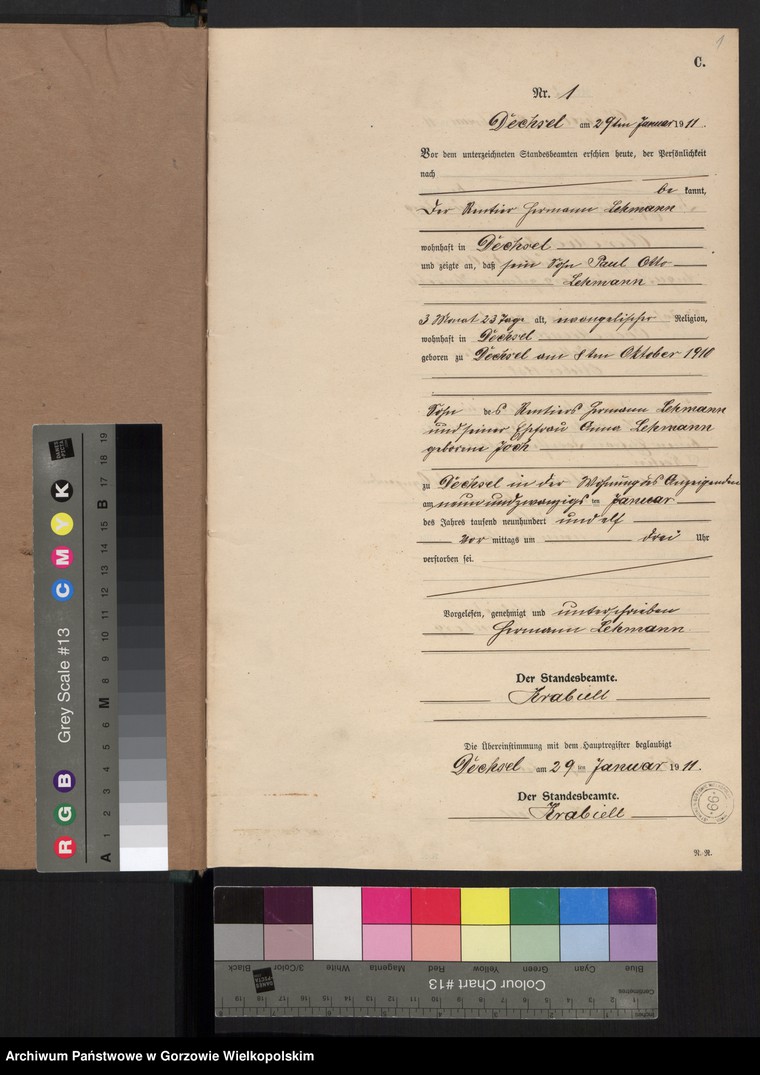 1
C.
Nr. 1
Dechsel am 29ten Januar 1911.
Vor dem unterzeichneten Standesbeamten erschien heute, der Persönlichkeit
nach
be kannt,
Der Rentier Hermann Lehmann
wohnhaft in Dechsel
und zeigte an, daß sein Sohn Paul Otto
Lehmann
3 Monat 23 Tage alt, evangelischer Religion,
wohnhaft in Dechsel
geboren zu Dechsel am 8ten Oktober 1910
Sohn des Rentiers Hermann Lehmann
und seiner Ehefrau Anna Lehmann
geborene Joch
zu Dechsel in der Wohnung des Anzeigenden
am neun und zwanzigs ten Januar
des Jahres tausend neunhundert und elf
Vor mittags um drei Uhr
verstorben sei.
Vorgelesen, genehmigt und unterschrieben
Hermann Lehmann
Der Standesbeamte.
Krabiell
Die Übereinstimmung mit dem Hauptregister beglaubigt
Dechsel am 29 ten Januar 1911.
Der Standesbeamte.
Krabiell
66
N. N.
DANES PICTA
R G B Grey Scale #13 C M Y K
A 1 2 3 4 5 6 M 7 8 9 10 11 12 13 14 15 B 17 18 19
Black 3/Color White Magenta Red Yellow Green Cyan Blue
Colour Chart #13
DANES PICTA
Centimetres
Inches
Archiwum Państwowe w Gorzowie Wielkopolskim